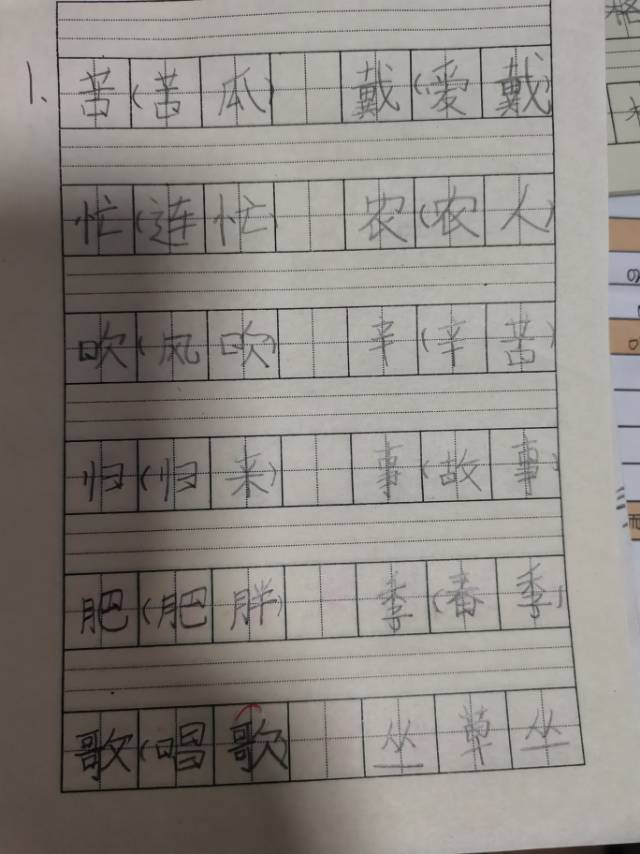 1. 苦(苦瓜) 戴(爱戴)
忙(连忙) 农(农人)
吹(风吹) 辛(辛苦)
归(归来) 事(故事)
肥(肥胖) 季(春季)
歌(唱歌) 坐 草坐